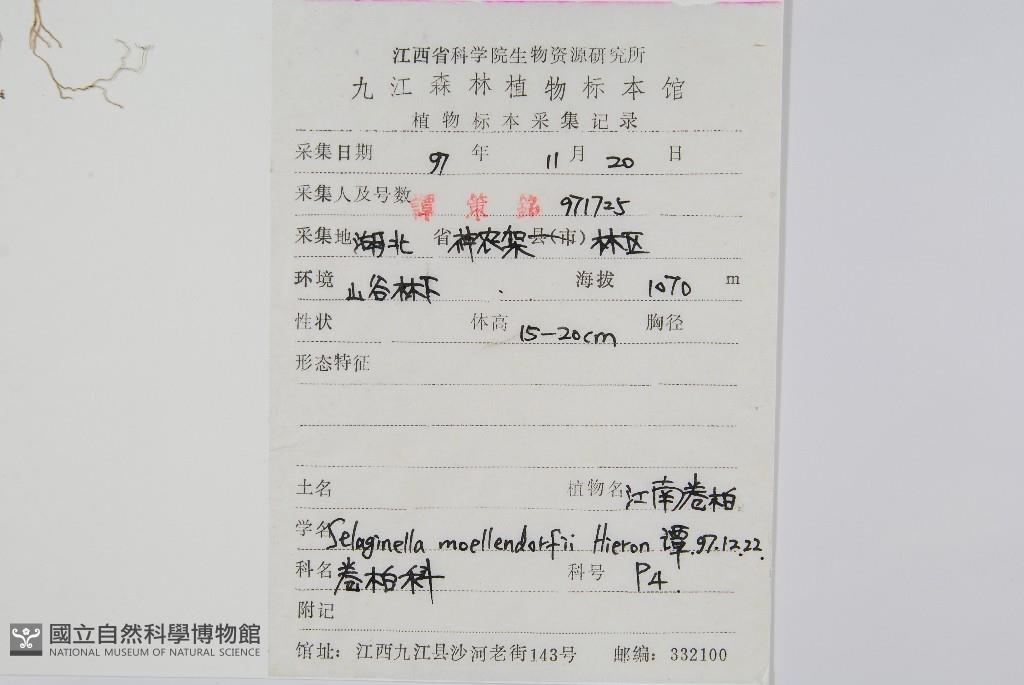 江西省科学院生物资源研究所
九江森林植物标本馆
植物标本采集记录
采集日期 97 年 11 月 20 日
采集人及号数 譚策銘 971725
采集地 湖北 省 神农架 县(市) 林区
环境 山谷林下 海拔 1070 m
性状 体高 15-20cm 胸径
形态特征
土名 植物名 江南卷柏
学名 Selaginella moellendorfii Hieron 譚.97.12.22.
科名 卷柏科 科号 P4.
附记
馆址：江西九江县沙河老街143号 邮编：332100
國立自然科學博物館
NATIONAL MUSEUM OF NATURAL SCIENCE